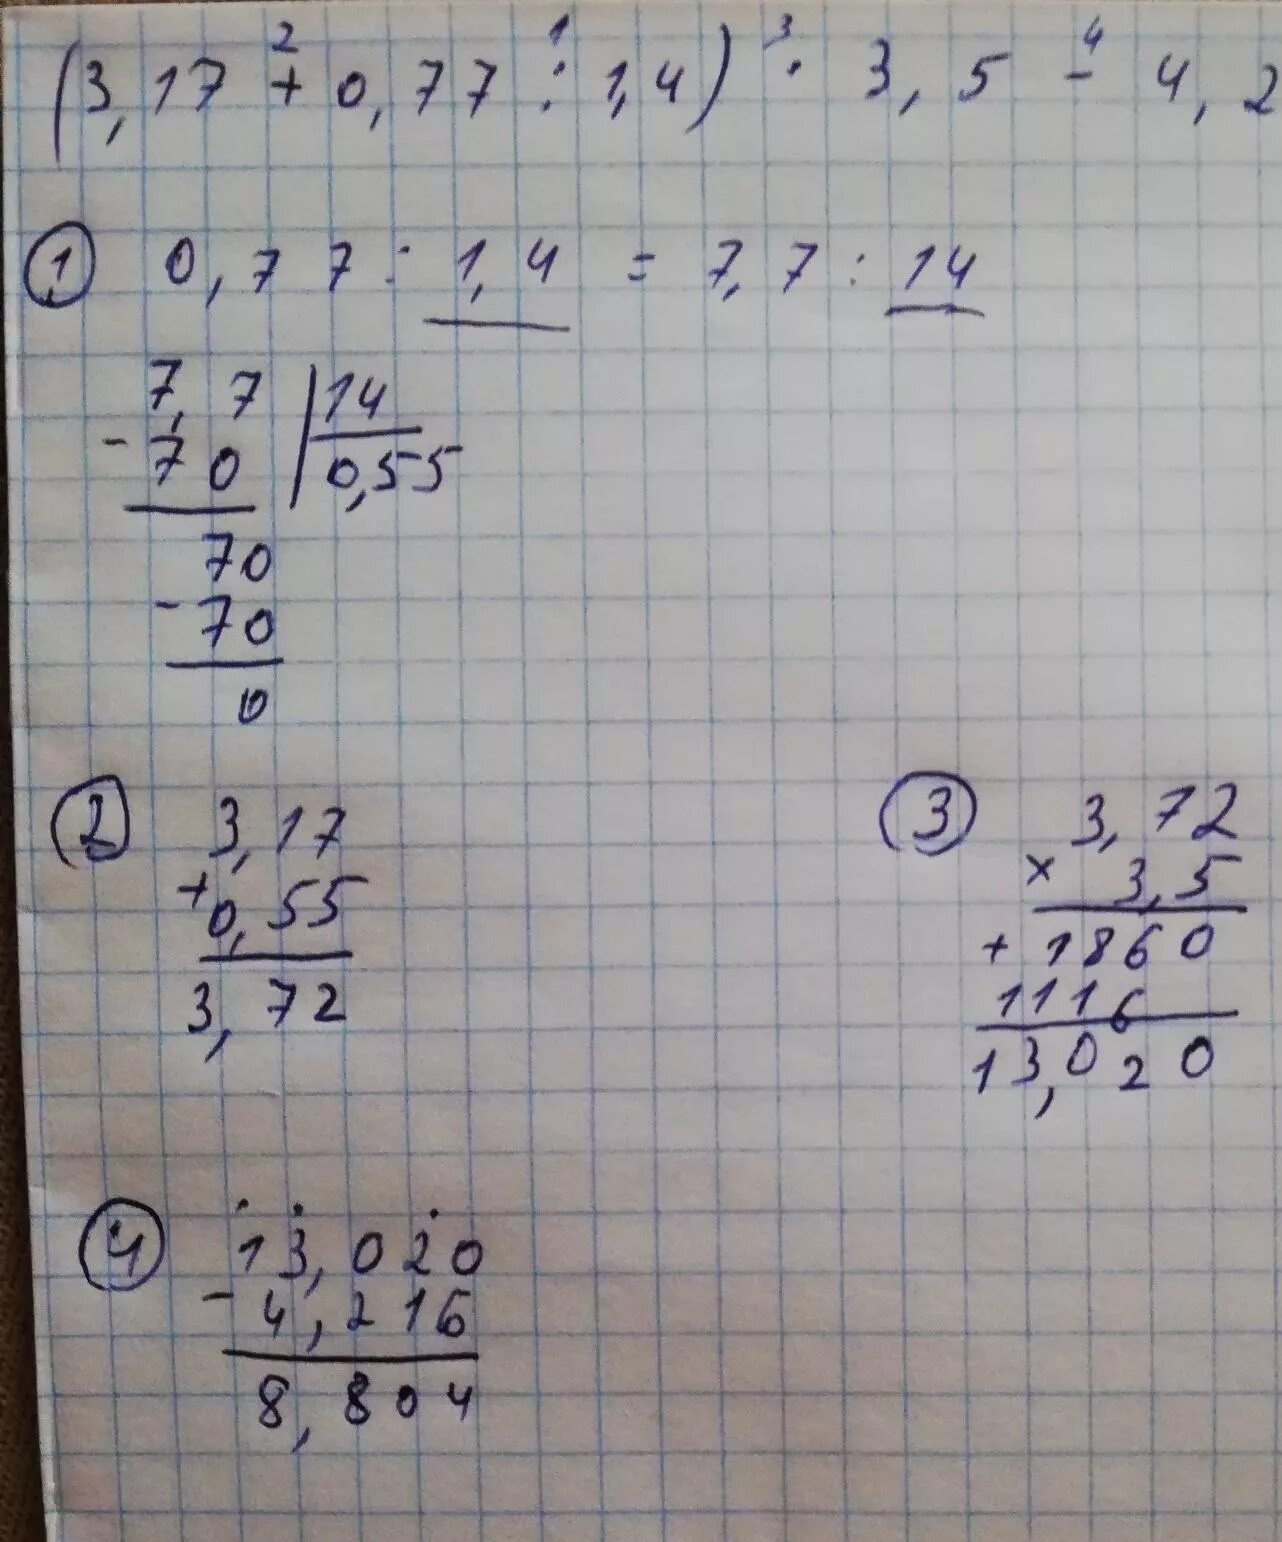 2 1 3 4
(3,17 + 0,77 : 1,4) · 3,5 - 4,2
1 0,77 : 1,4 = 7,7 : 14
7,7 14
- 70 0,55
70
- 70
0
2 3,17
+ 0,55
3,72
3 3,72
× 3,5
+ 1860
1116
13,020
4 13,020
- 4,216
8,804